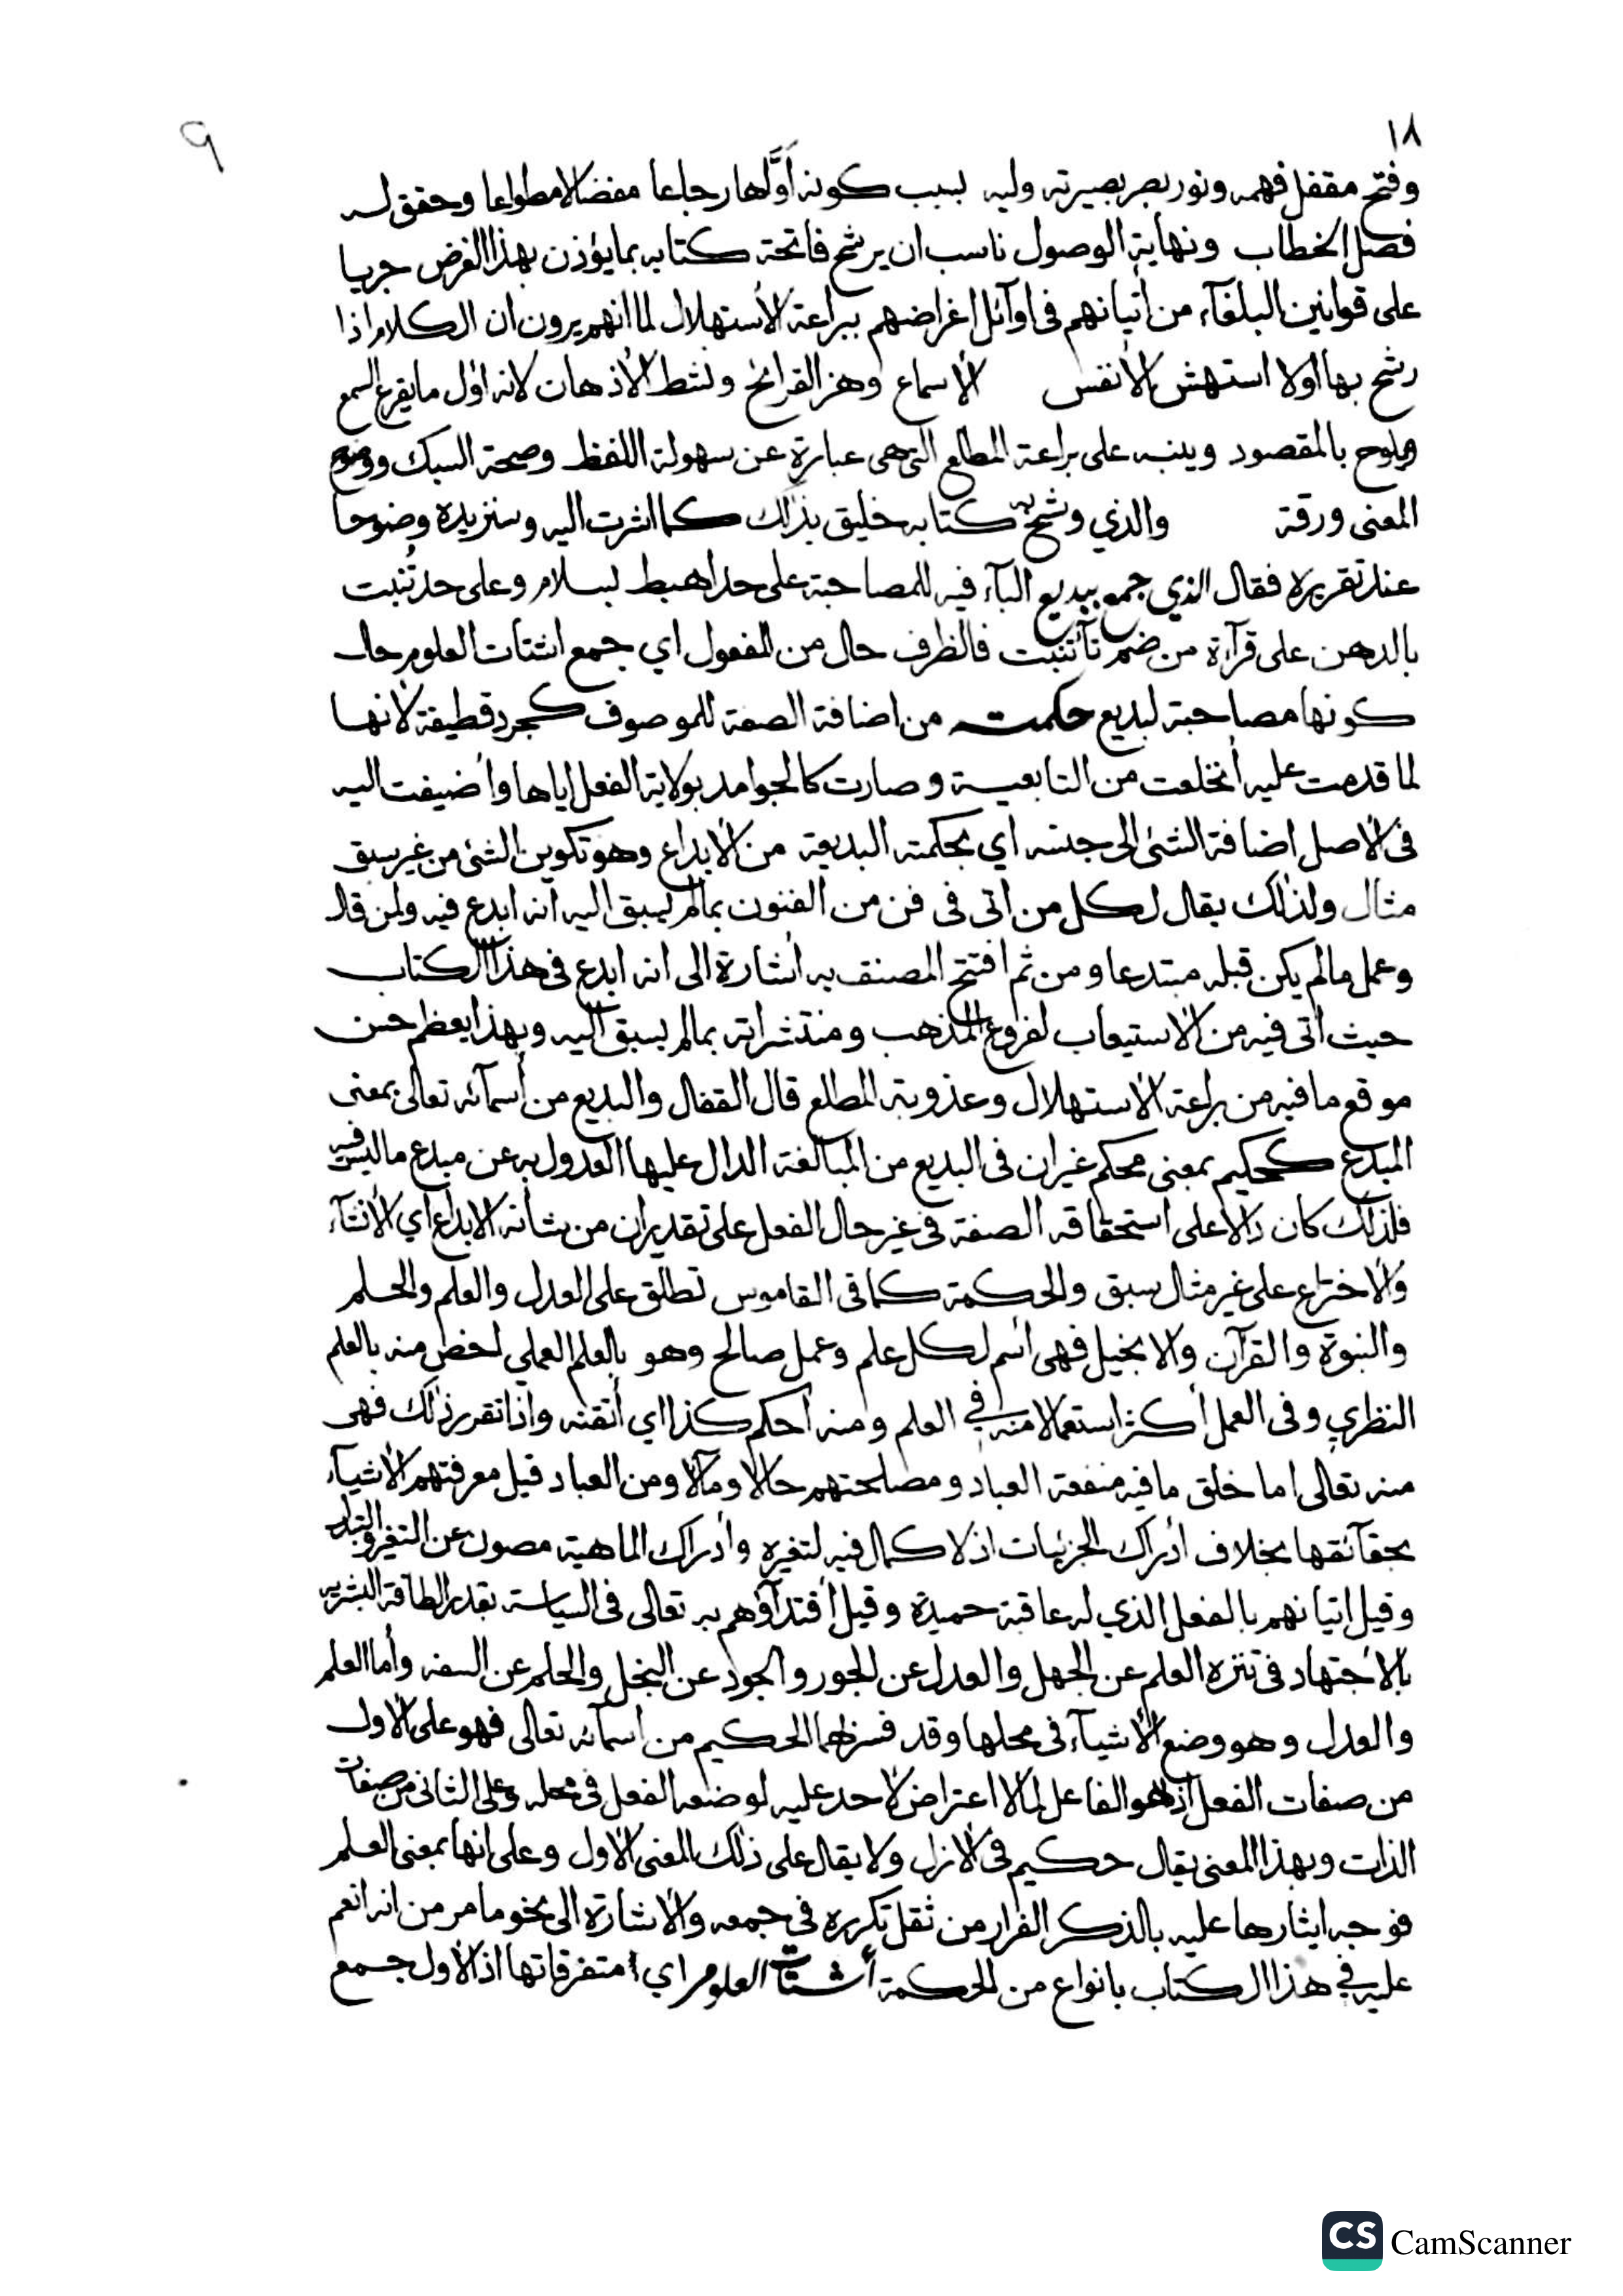 ١٨
٩
وفتح مقفل فهمه ونور بصر بصيرته وليه بسبب كونه أوَّلها رجاعا مفضالا مطواعا وحقق له
فصل الخطاب ونهاية الوصول ناسب ان يرشح فاتحة كتابه بما يؤذن بهذا الغرض جريا
على قوانين البلغآء من أتيانهم فى اوآئل اغراضهم ببراعة الأستهلال لما انهم يرون ان الكلام اذا
رشح بها اولا استهش الأنفس الأسماع وهز القرائح ونشط الأذهان لانه اول ما يقرع السمع
ويلوح بالمقصود وينبه على براعة المطلع التى هى عبارة عن سهولة اللفظ وصحة السبك ووضوح
المعنى ورقة والذي وشح به كتابه خليق بذلك كما اشرت اليه وسنزيده وضوحا
عند تقريره فقال الذي جمع ببديع البآء فيه للمصاحبة على حد اهبط بسلام وعلى حد تُنبت
بالدهن على قرآءة من ضم تآء تنبت فالظرف حال من المفعول اي جمع اشتات العلوم حال
كونها مصاحبة لبديع حكمته من اضافة الصفة للموصوف كجرد قطيفة لأنها
لما قدمت عليه أنخلعت من التابعية وصارت كالجوامد بولاية الفعل اياها وأضيفت اليه
فى الأصل اضافة الشئ الى جنسه اي بحكمته البديعة من الأبداع وهو تكوين الشئ من غير سبق
مثال ولذلك يقال لكل من اتى فى فن من الفنون بما لم يسبق اليه انه ابدع فيه ولمن قال
وعمل ما لم يكن قبله مبتدعا ومن ثم افتتح المصنف به أشارة الى انه ابدع فى هذا الكتاب
حيث أتى فيه من الأستيعاب لفروع المذهب ومنتشراته بما لم يسبق اليه وبهذا يعظم حسن
موقع ما فيه من براعة الأستهلال وعذوبة المطلع قال القفال والبديع من أسمآئه تعالى بمعنى
المبدع كحكيم بمعنى محكم غير ان فى البديع من المبالغة الدال عليها العدول به عن مبدع ما ليس فيه
فلذلك كان دالا على استحقاقه الصفة فى غير حال الفعل على تقدير ان من شأنه الابداع اي الأنشآء
والأختراع على غير مثال سبق والحكمة كما فى القاموس تطلق على العدل والعلم والحلم
والنبوة والقرآن والانجيل فهى أسم لكل علم وعمل صالح وهو بالعلم العملي اخص منه بالعلم
النظري وفى العمل أكثر استعمالا منه في العلم ومنه أحكم كذا اي أتقنه واذا تقرر ذلك فهى
منه تعالى اما خلق ما فيه منفعة العباد ومصلحتهم حالا ومآلا ومن العباد قيل معرفتهم الأشيآء
بحقآئقها بخلاف أدراك الجزئيات اذ لا كمال فيه لتغيره وأدراك الماهية مصون عن التغير والتبدل
وقيل اتيانهم بالفعل الذي له عاقبة حميدة وقيل أقتدآؤهم به تعالى فى السياسة بقدر الطاقة البشريه
بالأجتهاد فى تنزه العلم عن الجهل والعدل عن الجور والجود عن البخل والحلم عن السفه وأما العلم
والعدل وهو وضع الأشيآء فى محلها وقد فسر بهما الحكيم من أسمآئه تعالى فهو على الأول
من صفات الفعل اذ هو الفاعل لما لا اعتراض لأحد عليه لو ضعه الفعل فى محله وعلى الثانى من صفات
الذات وبهذا المعنى يقال حكيم فى الأزل ولا يقال على ذلك المعنى الأول وعلى انها بمعنى العلم
فوجه ايثارها عليه بالذكر الفرار من ثقل تكرره فى جمعه والأشارة الى نحو ما مر من انه انعم
عليه في هذا الكتاب بانواع من الحكمة أشتات العلوم اي متفرقاتها اذ الأول جمع
CS CamScanner